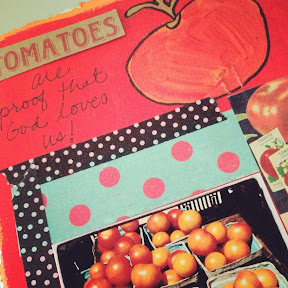 TOMATOES
are
proof that
God loves
us!